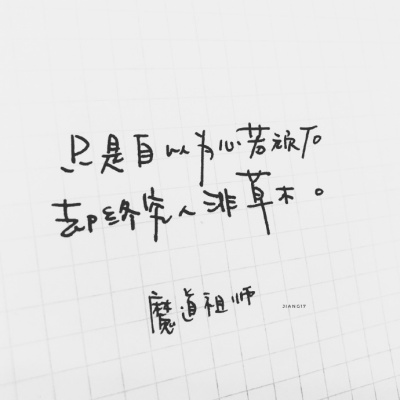 只是自以为心若顽石
却终究人非草木。
魔道祖师
JIANGIT